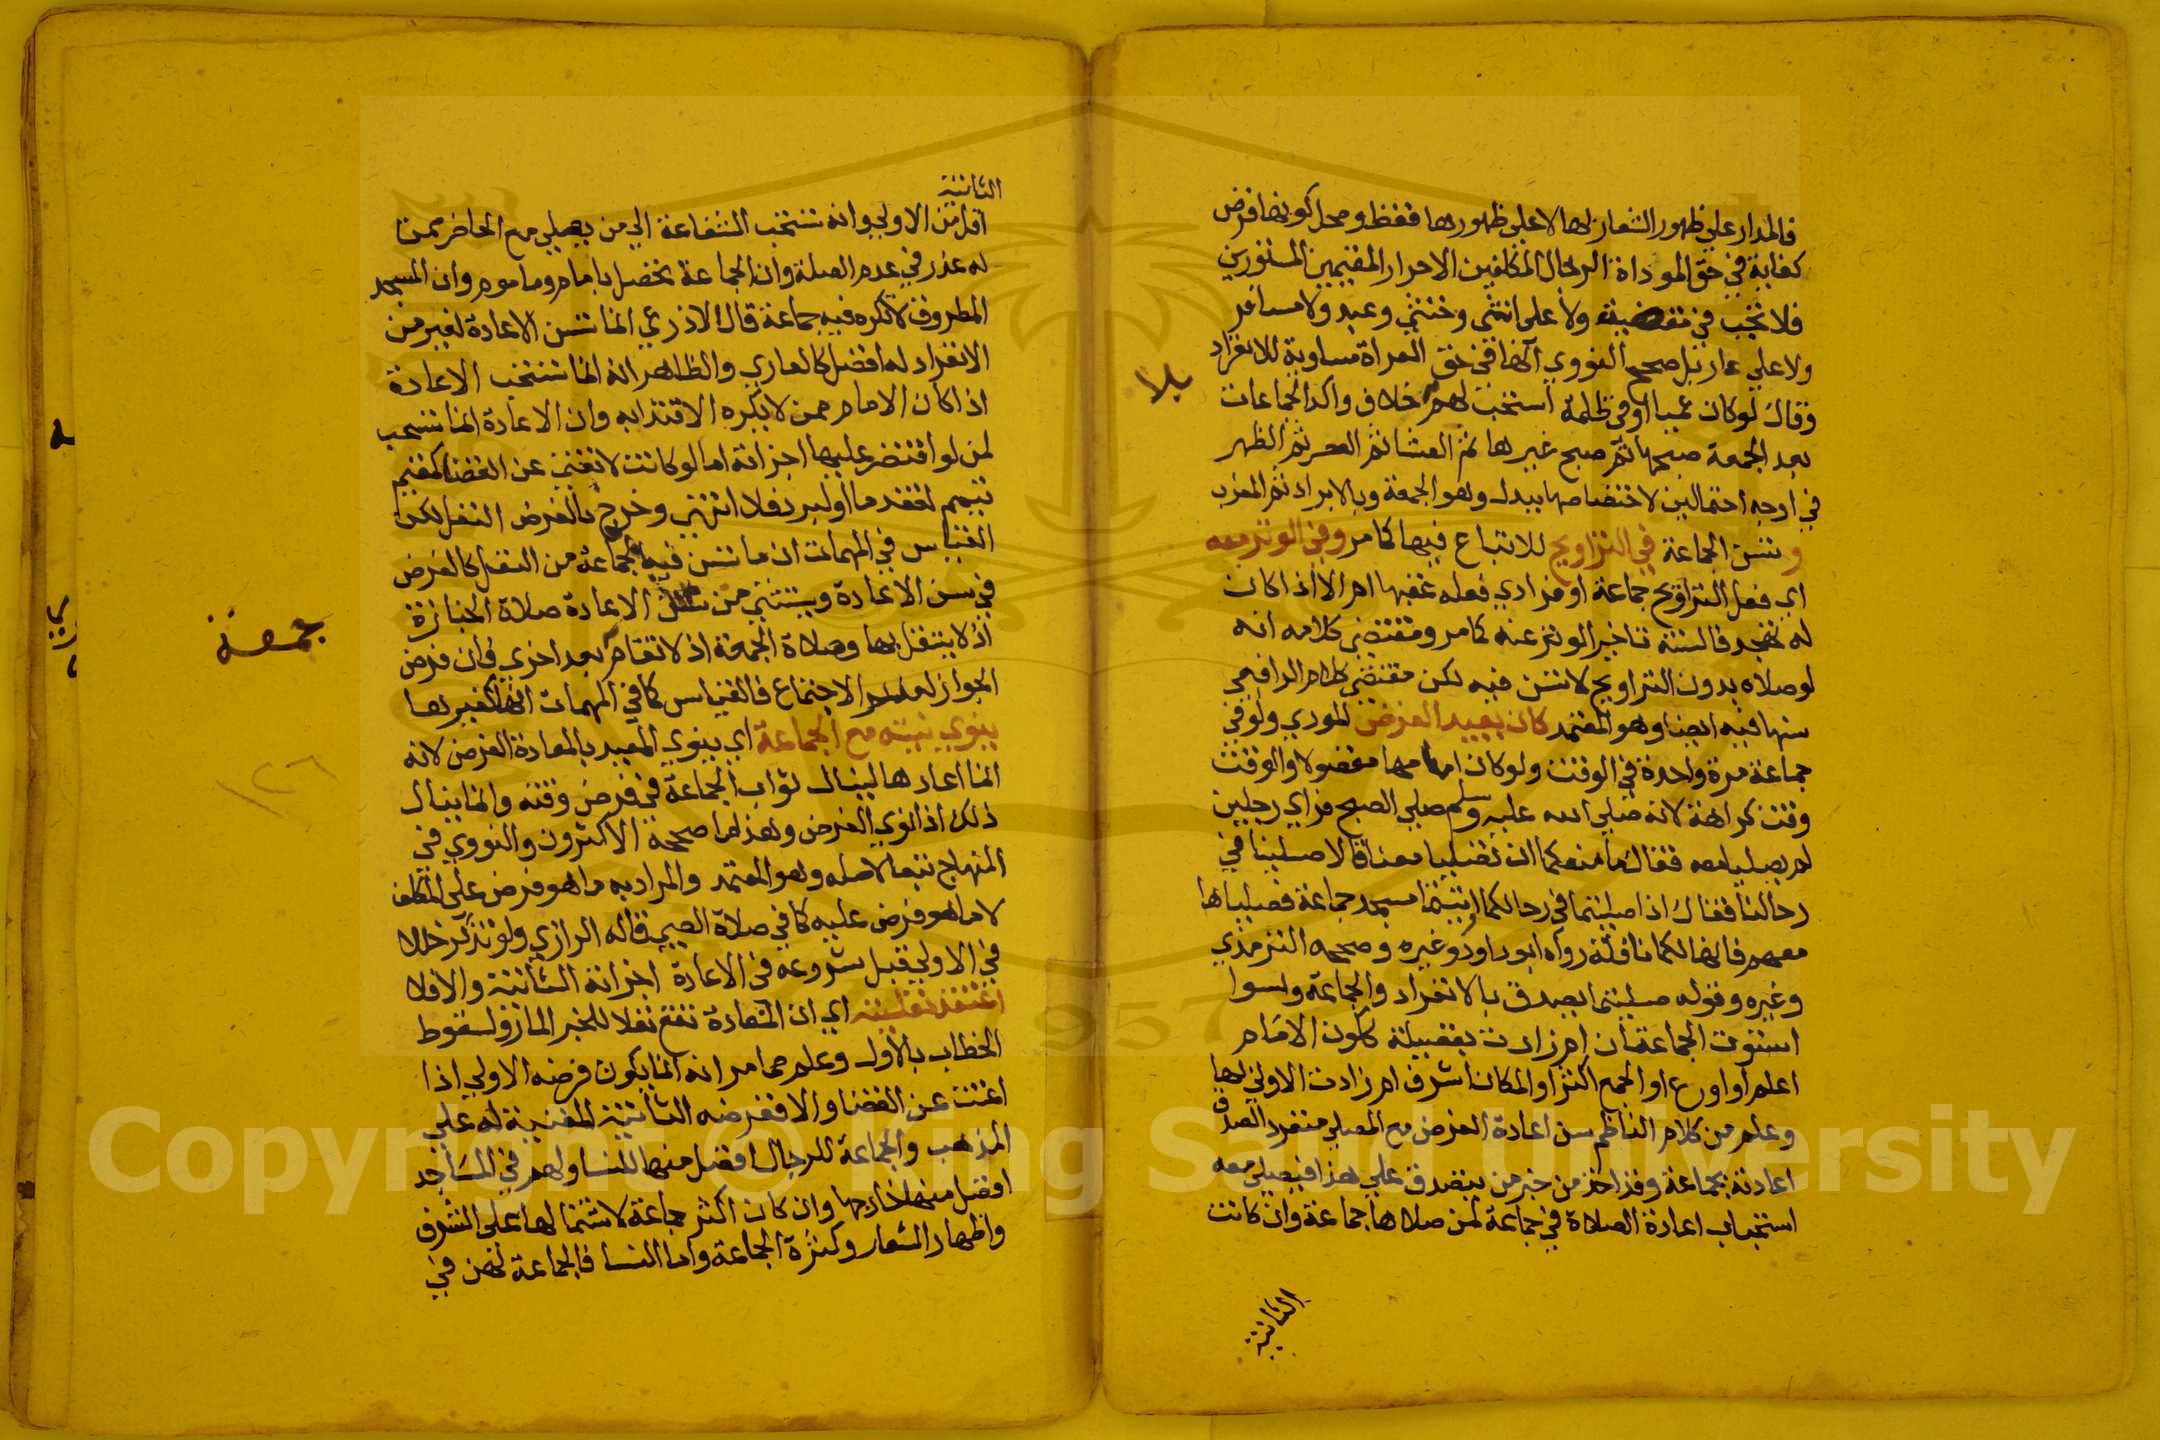 فالمدار علي ظهور الشعار بها لا علي ظهورها فقط ومحل كونها فرض
كفاية في حق الموداة الرجال المكلفين الاحرار المقيمين المستورين
فلا تجب في مقضية ولا على انثى وخنثي وعبد ولا مسافر
ولا علي عار بل صحح النووي انها في حق العراة مساوية للانفراد
بلا
وقال لو كان عميا او في ظلمة استحبت لهم خلاف واكد الجماعات
بعد الجمعة صبحها ثم صبح غيرها ثم العشا ثم العصر ثم الظهر
في اوجه احتمالين لاختصاصها ببدل وهو الجمعة وبالابراد ثم المغرب
وتسن الجماعة في التراويح للاتباع فيها كما مر وفي الوتر معه
اي فعل التراويح جماعة او فرادي فعله عقبها ام لا الا اذا كان
له تهجد فالسنة تاخير الوتر عنه كما مر ومقتضي كلامه انه
لو صلاه بدون التراويح لا تسن فيه لكن مقتضي كلام الرافعي
سنها فيه ايضا وهو المعتمد كان يعيد الفرض المودي ولو في
جماعة مرة واحدة في الوقت ولو كان امامها مفضولا والوقت
وقت كراهة لانه صلي الله عليه وسلم صلي الصبح فراي رجلين
لم يصليا معه فقال ما منعكما ان تصليا معنا قالا صلينا في
رحالنا فقال اذا صليتما في رحالكما ثم اتيتما مسجد جماعة فصلياها
معهم فانها لكما نافلة رواه ابو داود وغيره وصححه الترمذي
وغيره وقوله صليتما يصدق بالانفراد والجماعة وسوا
استوت الجماعتان ام زادت بفضيلة ككون الامام
اعلم او اورع او الجمع اكثر او المكان اشرف ام زادت الاولي بها
وعلم من كلام الناظم سن اعادة الفرض مع المصلي منفردا لصدق
اعادته بجماعة وقد اخذ من خبر من يتصدق علي هذا فيصلي معه
استحباب اعادة الصلاة في جماعة لمن صلاها جماعة وان كانت
الثانية
الثانية
اقل من الاولي وانه تستحب الشفاعة الي من يصلي مع الحاضر ممن
له عذر في عدم الصلاة وان الجماعة تحصل بامام وماموم وان المسجد
المطروق لا تكره فيه جماعة قال الاذرعي انما تسن الاعادة لغير من
الانفراد له افضل كالعاري والظاهر انه انما تستحب الاعادة
اذا كان الامام ممن لا يكره الاقتدا به وان الاعادة انما تستحب
لمن لو اقتصر عليها اجزاته اما لو كانت لا تغني عن القضا كمقيم
تيمم لفقد ما او لبرد فلا انتهي وخرج بالفرض النفل لكن
القياس في المهمات ان ما تسن فيه الجماعة من النفل كالفرض
في سن الاعادة ويستثني من سن الاعادة صلاة الجنازة
اذ لا يتنفل بها وصلاة الجمعة اذ لا تقام بعد اخري فان فرض
جمعة
الجواز لعسر الاجتماع فالقياس كما في المهمات انها كغيرها
ينوي نيته مع الجماعة اي ينوي المعيد بالمعادة الفرض لانه
انما اعادها لينال ثواب الجماعة في فرض وقته وانما ينال
ذلك اذا نوي الفرض وهذا ما صححه الاكثرون والنووي في
المنهاج تبعا لاصله وهو المعتمد والمراد به ما هو فرض علي المكلف
لا ما هو فرض عليه كما في صلاة الصبي قاله الرازي ولو تذكر خللا
في الاولي قبل شروعه في الاعادة اجزاته الثانية والا فلا
اعتقد نفليته اي ان المعادة تقع نفلا للخبر المار ولسقوط
الخطاب بالاول وعلم مما مر انه انما يكون فرضه الاولي اذا
اغنت عن القضا والا ففرضه الثانية المغنية له علي
المذهب والجماعة للرجال افضل منها للنسا ولهم في المساجد
افضل منها خارجها وان كان اكثر جماعة لاشتمالها علي الشرف
واظهار الشعار وكثرة الجماعة واما النسا فالجماعة لهن في
Copyright © King Saud University
1957